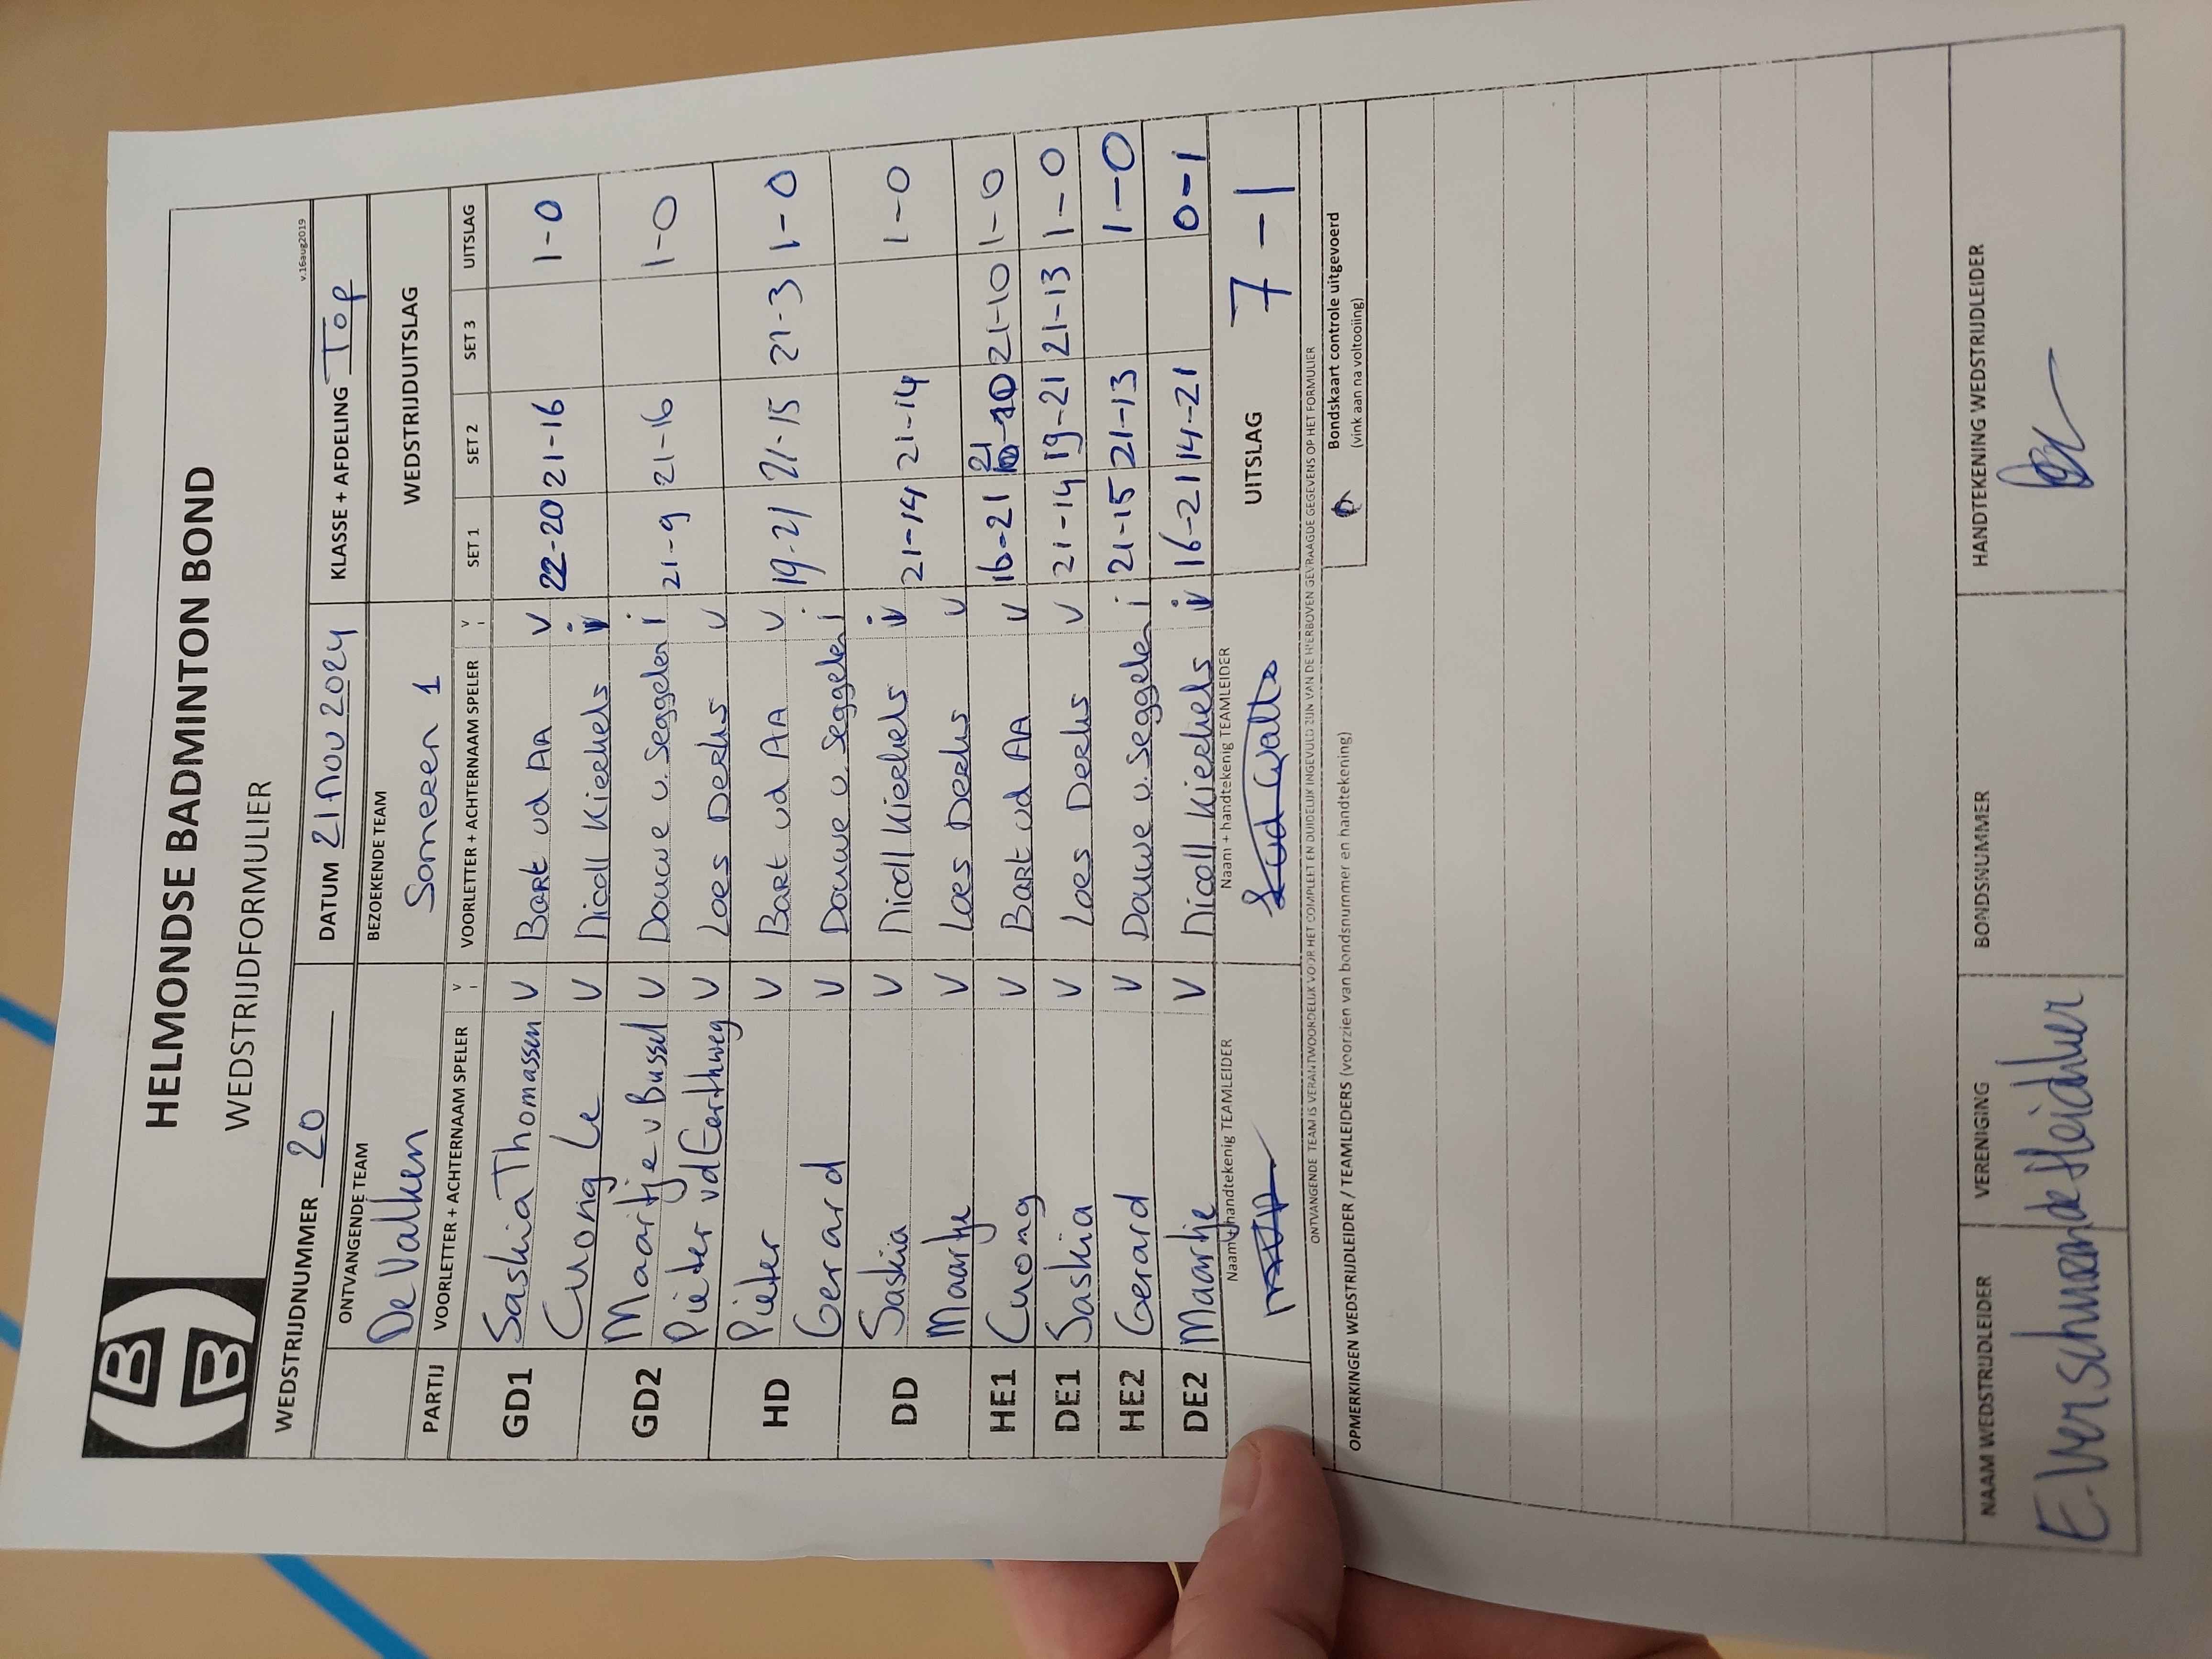 HELMONDSE BADMINTON BOND
WEDSTRIJDFORMULIER
v.16aug2019
WEDSTRIJDNUMMER 20 DATUM 21 nov 2024 KLASSE + AFDELING Top
ONTVANGENDE TEAM BEZOEKENDE TEAM WEDSTRIJDUITSLAG
De Valken Someren 1
PARTIJ VOORLETTER + ACHTERNAAM SPELER V I VOORLETTER + ACHTERNAAM SPELER V I SET 1 SET 2 SET 3 UITSLAG
GD1 Saskia Thomassen V Bart vd AA V 22-20 21-16 1-0
Cuong Le V Nicoll Kierkels i
GD2 Maartje v Bussel V Douwe v. Seggelen i 21-9 21-16 1-0
Pieter vd Eerthweg V Loes Derks V
HD Pieter V Bart vd AA V 19-21 21-15 21-3 1-0
Gerard V Douwe v. Seggelen i
DD Saskia V Nicoll Kierkels i 21-14 21-14 1-0
Maartje V Loes Derks V
HE1 Cuong V Bart vd AA V 16-21 21 21-10 1-0
DE1 Saskia V Loes Derks V 21-14 19-21 21-13 1-0
HE2 Gerard V Douwe v. Seggelen i 21-15 21-13 1-0
DE2 Maartje V Nicoll Kierkels i 16-21 14-21 0-1
Naam + handtekenig TEAMLEIDER Naam + handtekenig TEAMLEIDER UITSLAG 7-1
ONTVANGENDE TEAM IS VERANTWOORDELIJK VOOR HET COMPLEET EN DUIDELIJK INGEVULD ZIJN VAN DE HIERBOVEN GEVRAAGDE GEGEVENS OP HET FORMULIER
OPMERKINGEN WEDSTRIJDLEIDER / TEAMLEIDERS (voorzien van bondsnummer en handtekening)
Bondskaart controle uitgevoerd
(vink aan na voltooiing)
NAAM WEDSTRIJDLEIDER VERENIGING BONDSNUMMER HANDTEKENING WEDSTRIJDLEIDER
E. Verschuren de Heidaker